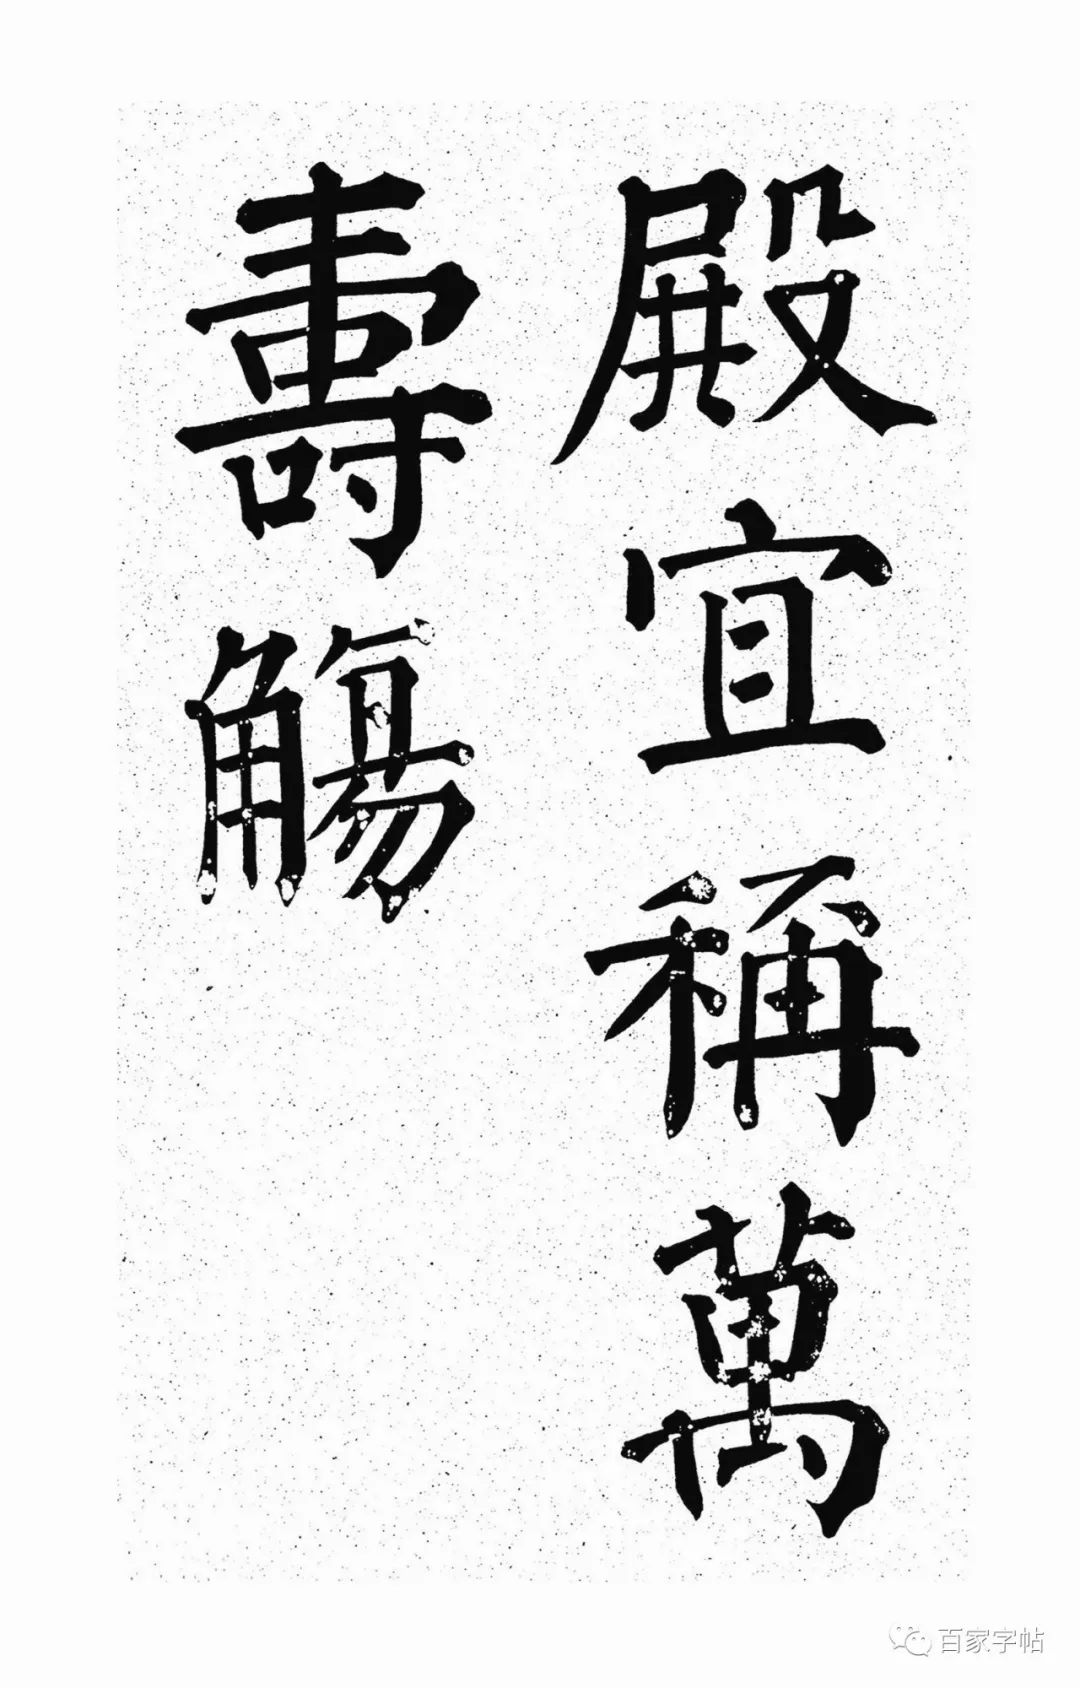 殿宜稱萬
壽觴
百家字帖